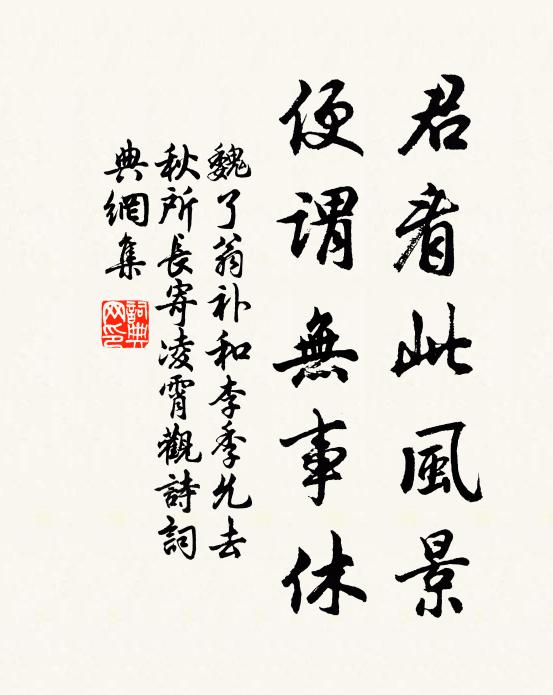 君看此風景
便謂無事休
魏了翁补和李季允去
秋所長寄凌霄觀詩詞
典網集
詞典网印